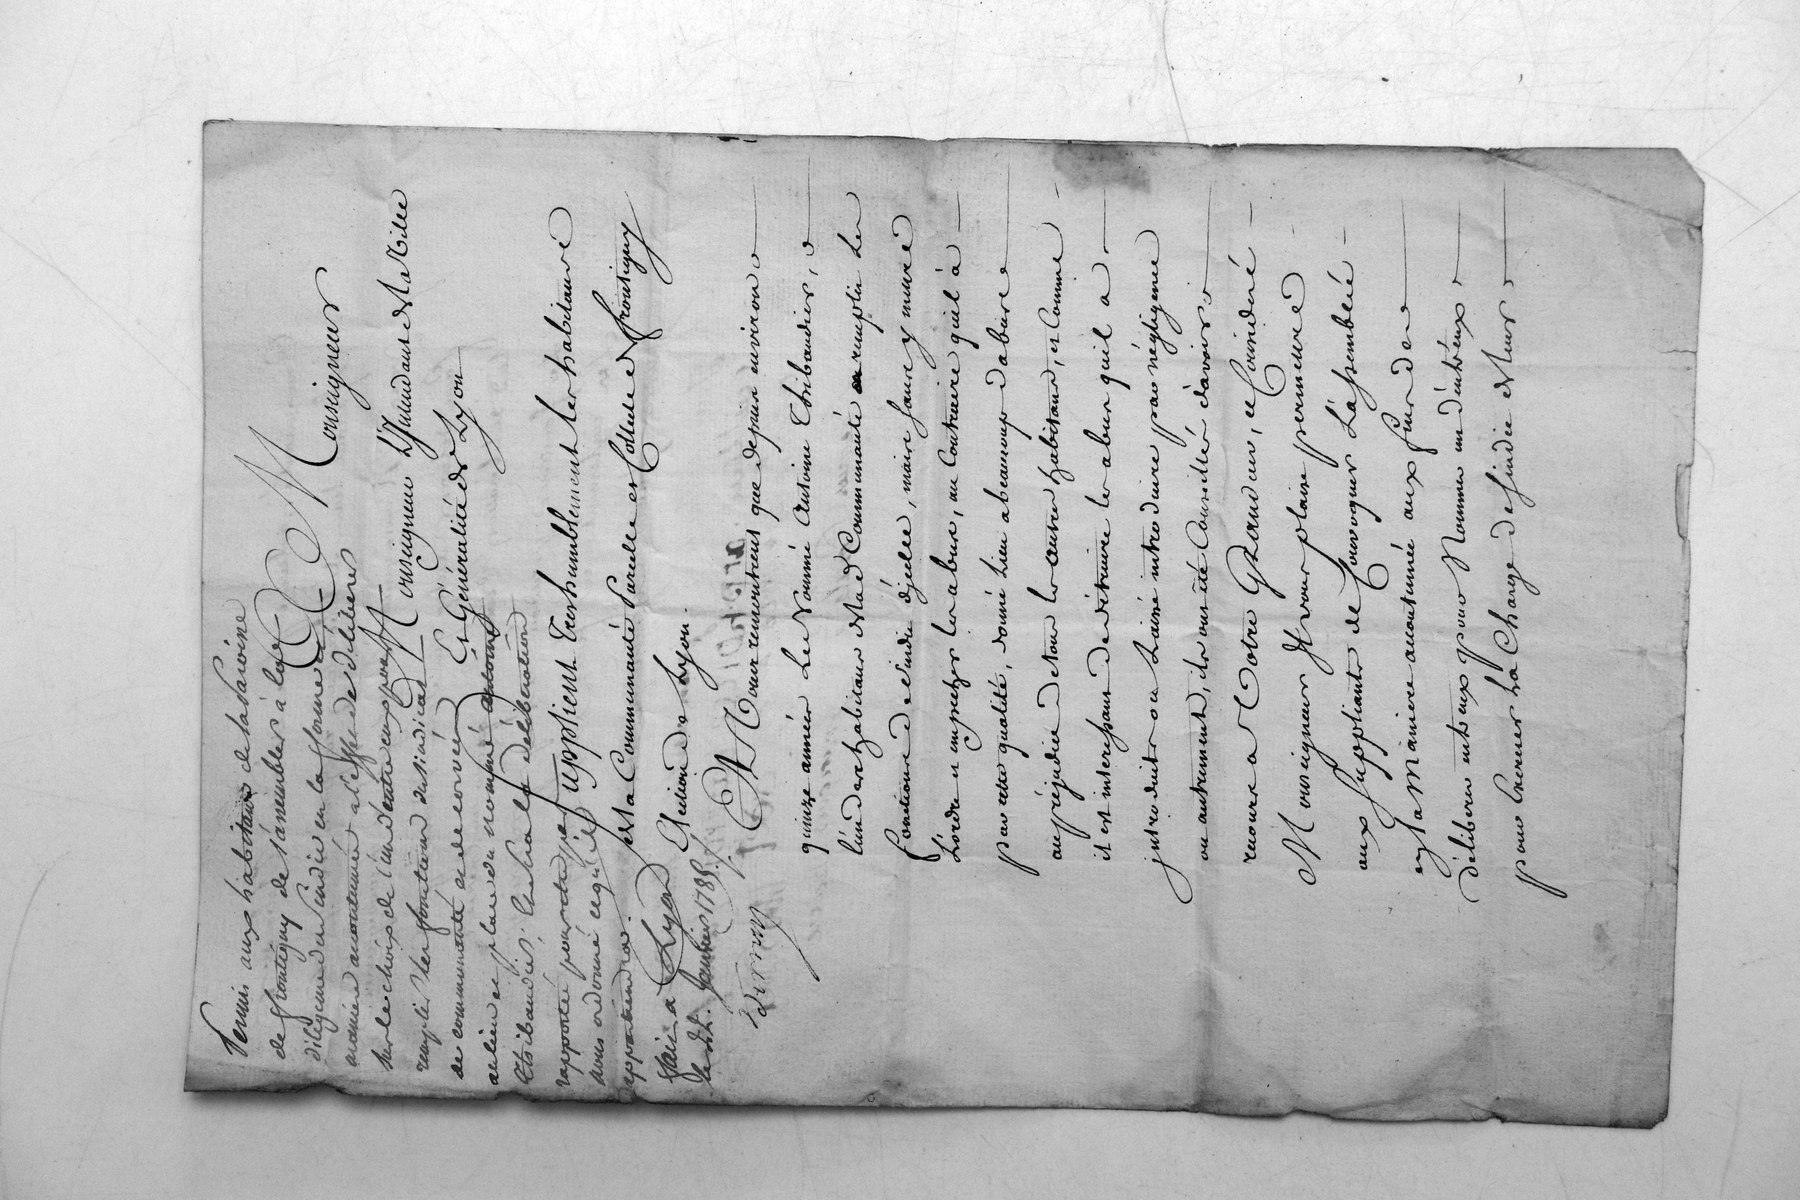 Permis aux habitans de la Paroisse
de frontigny de s'assembler à la
diligence du Sindic en la forme et
maniere accoutumée a l'effet de deliberer
sur le choix de l'un d'entre eux pour
remplir les fonctions de sindic
de communauté
au lieu et place du nommé Antoine
Thibaudier. la deliberation
rapportée pour être par
nous ordonné ce qu'il
appartiendra.
fait a Lyon
le 22. Janvier 1785.
terray
Monseigneur
Monseigneur L'Intendant de la Ville
Et Généralité de Lyon
Supplient Treshumblement les habitans
de la Communauté Parcelle et Collecte de frontigny
Election de Lyon.
Et Vous remontrent que depuis environ
quinze années Le Nommé Antoine Thibaudier,
l'un des habitans de lad Communauté remplit Les
fonctions de Sindic d'jcelle, mais sans y mettre
L'ordre et empecher les abus, au Contraire quil à
par cette qualité, donné Lieu a beaucoup d'abus
au préjudice de tous les autres habitans, et Comme
il est interessant de détruire les abus quil a
jntroduit ou Laissé introduire par négligence
ou autrement, ils ont été Conseillés d'avoir
recours a Votre Grandeur, ce Consideré
Monseigneur Il vous plaise permettre
aux Supliants de Convoquer L'assemblée
en La Maniere accoutumée aux fins de
déliberer entreux pour Nommer un d'entr'eux
pour Exercer La Charge de Sindic et leur